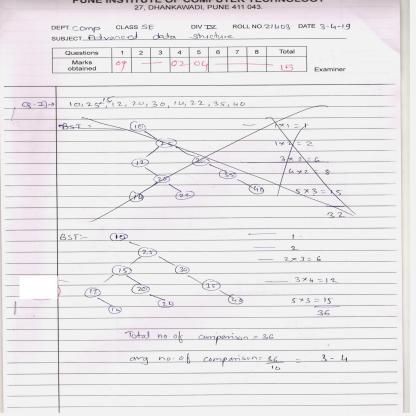 PUNE INSTITUTE OF COMPUTER TECHNOLOGY
27, DHANKAWADI, PUNE 411 043.
DEPT. Comp CLASS SE DIV IV ROLL NO. 21403 DATE 3-4-19
SUBJECT. Advanced data structure
Questions 1 2 3 4 5 6 7 8 Total
Marks obtained 09 — 02 04 15
Examiner
Q-1) 10, 25, 15, 12, 20, 30, 14, 22, 35, 40
BST:-
10
25
30
20
35
40
1x1 = 1
1x2 = 2
3x2 = 6
4x2 = 8
5x3 = 15
32
BST:-
10
25
15 30
12 20 35
14 22 40
1
2
2x3=6
3x4=12
5x3=15
36
Total no. of comparison = 36
avg no. of comparison = 36/10 = 3-4